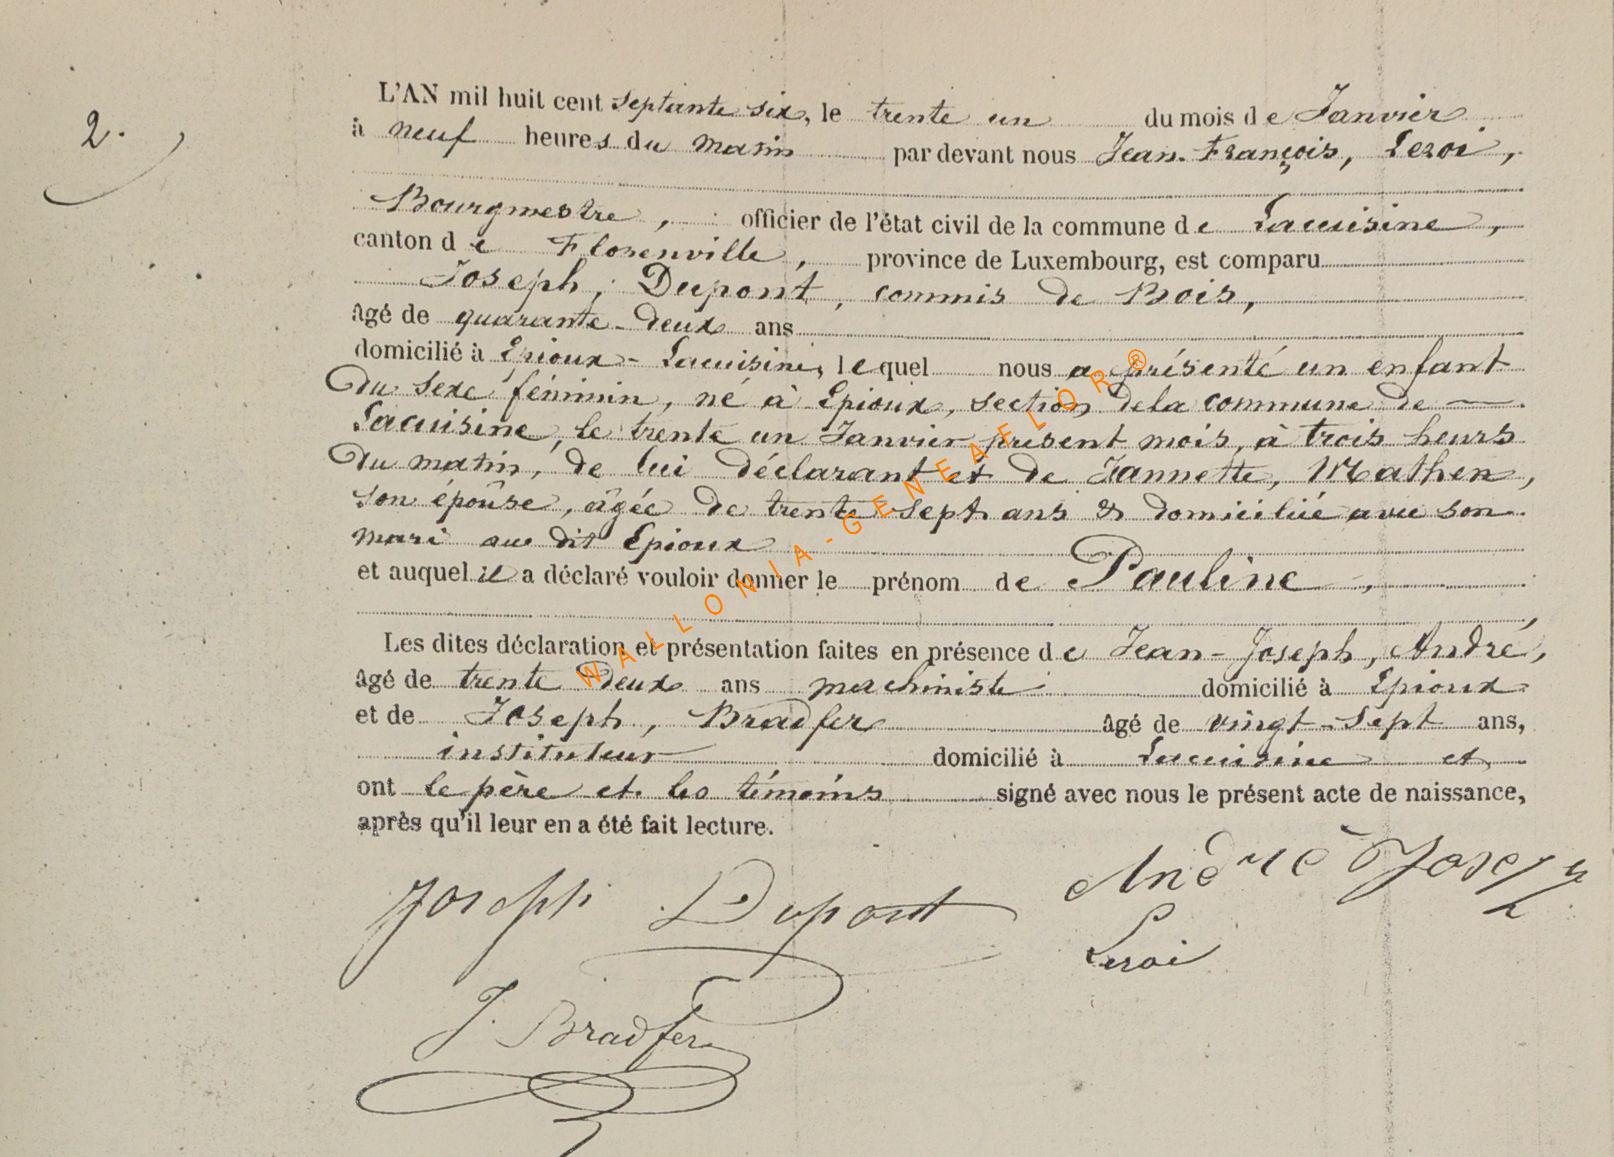 2.
L'AN mil huit cent septante six, le trente un du mois de Janvier
à neuf heures du matin par devant nous Jean-François, Leroi,
Bourgmestre, officier de l'état civil de la commune de Lacuisine,
canton de Florenville, province de Luxembourg, est comparu
Joseph, Dupont, commis de Bois,
âgé de quarante-deux ans
domicilié à Epioux-Lacuisine, lequel nous a présenté un enfant
du sexe féminin, né à Epioux, section de la commune de —
Lacuisine, le trente un Janvier présent mois, à trois heurs
du matin, de lui déclarant et de Jannette, Mathen,
son épouse, âgée de trente sept ans & domiciliée avec son
mari au dit Epioux
et auquel il a déclaré vouloir donner le prénom de Pauline,
Les dites déclaration et présentation faites en présence de Jean-Joseph, André,
âgé de trente deux ans machiniste domicilié à Epioux
et de Joseph, Bradfer âgé de vingt-sept ans,
instituteur domicilié à Lacuisine et
ont le père et les témoins signé avec nous le présent acte de naissance,
après qu'il leur en a été fait lecture.
Joseph Dupont André Joseph
Leroi
J. Bradfer
WALLONIA-GENEAFLOR®